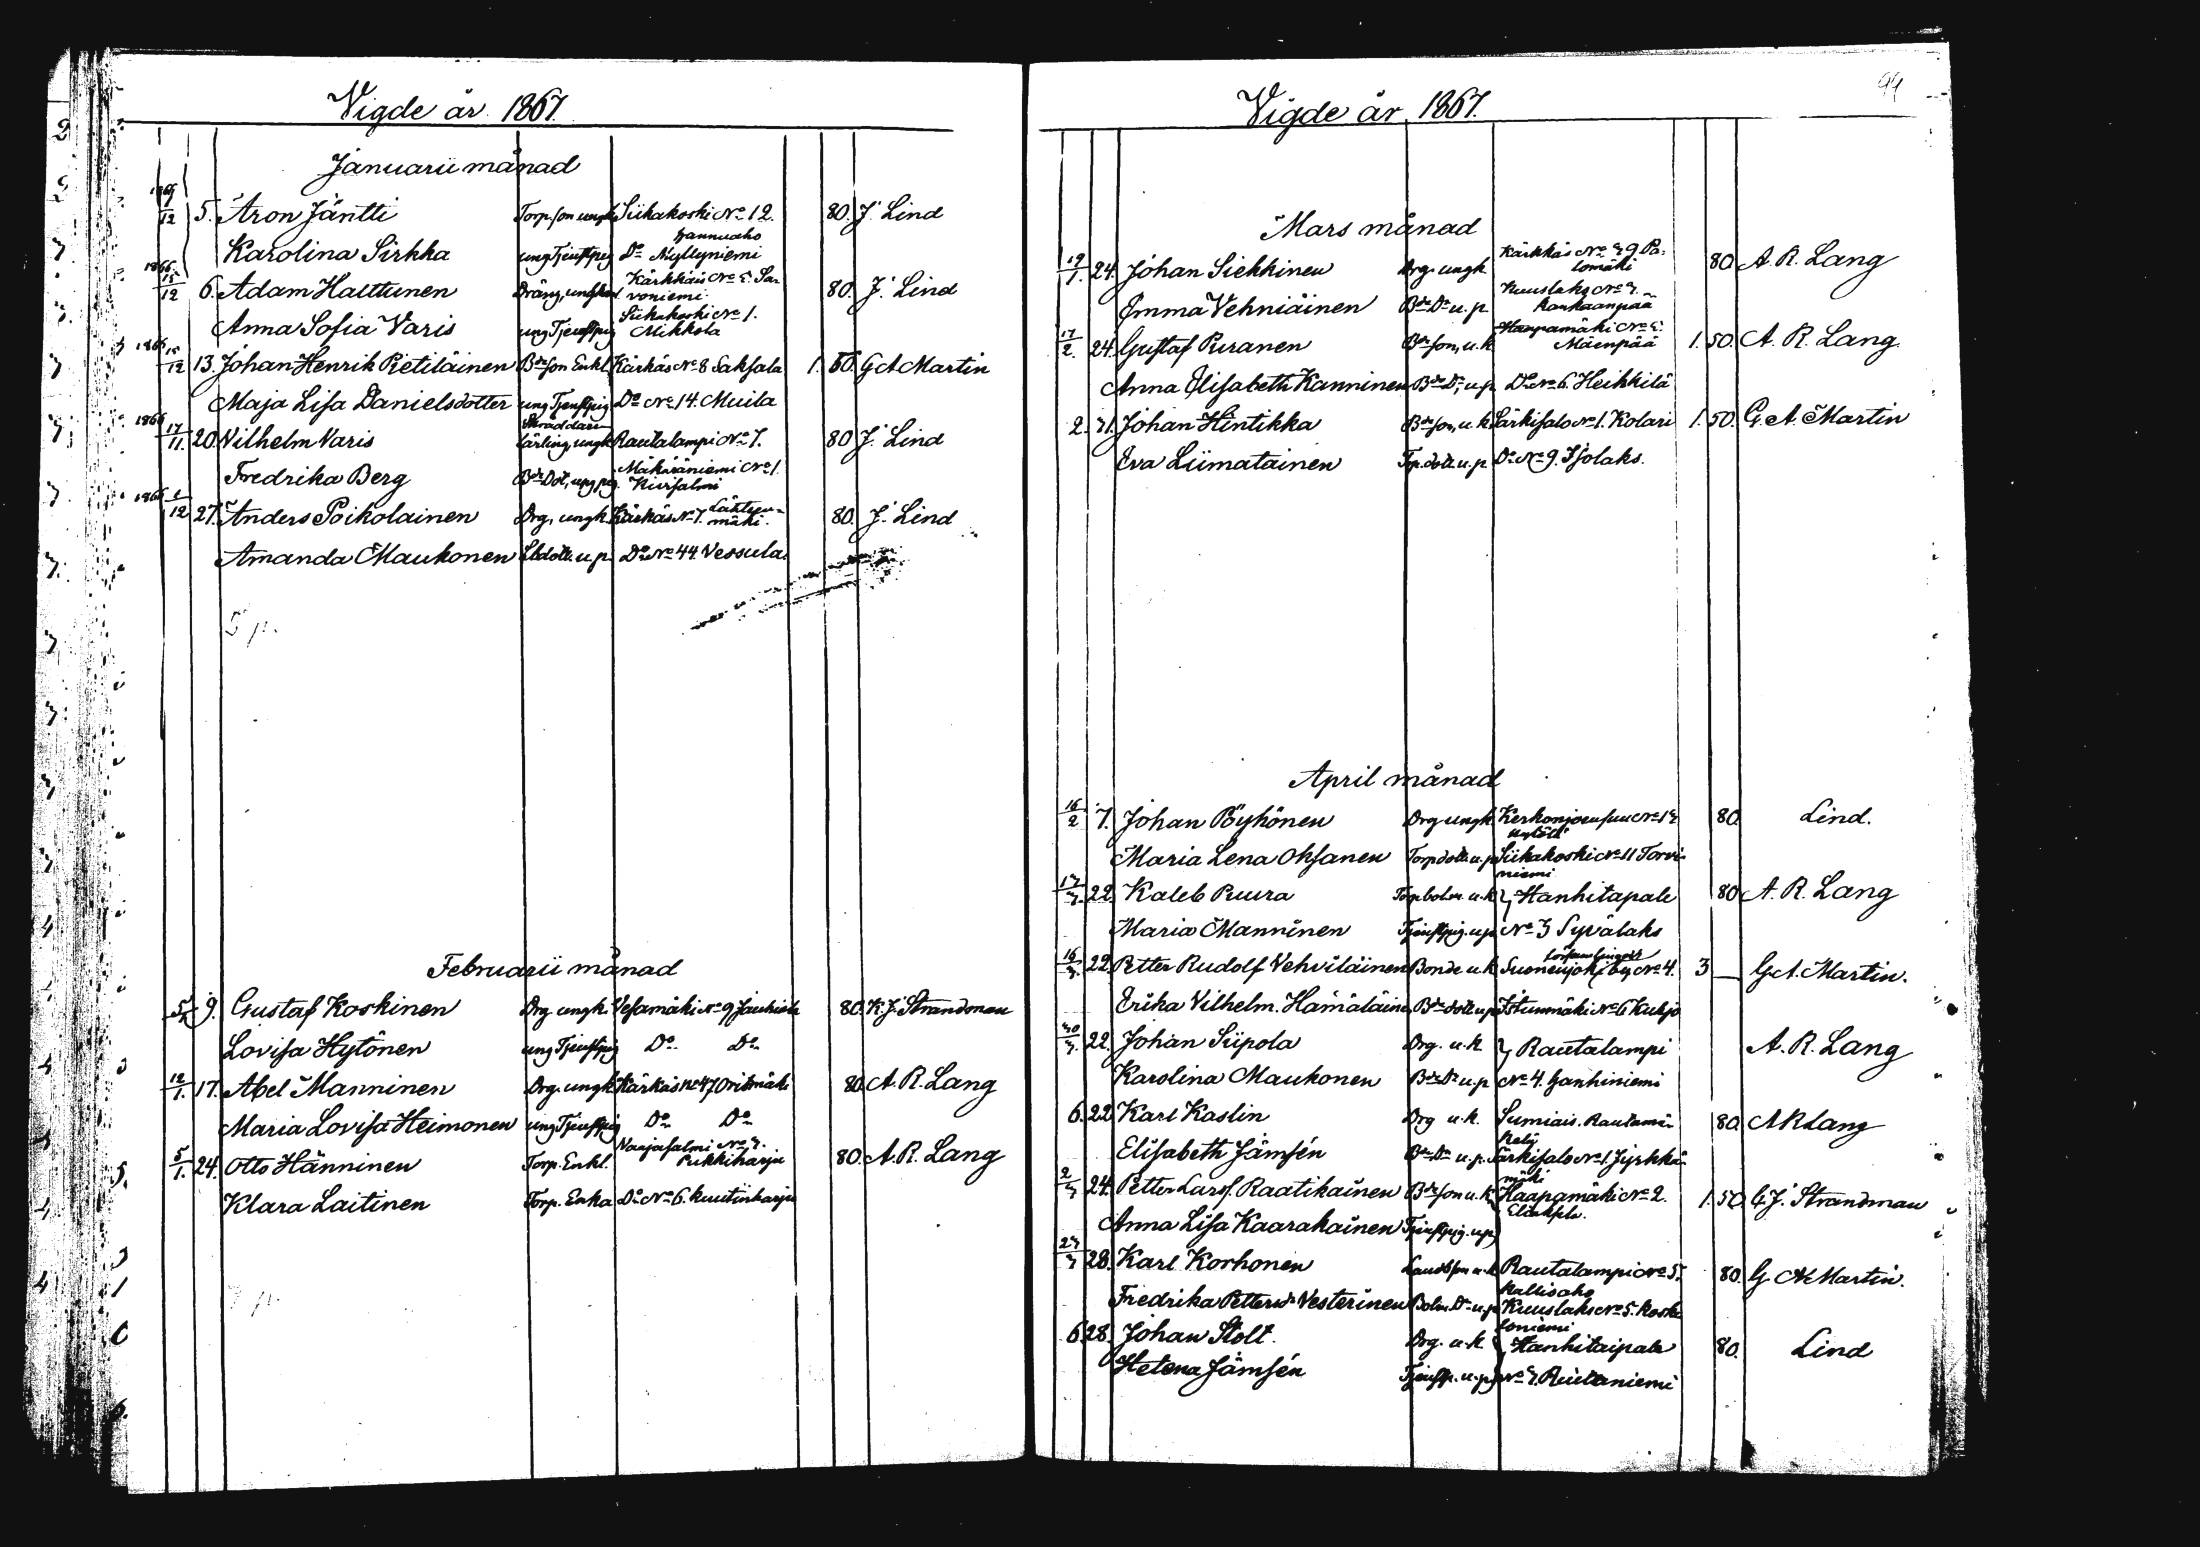 Vigde år 1867.
Januarii månad
1866 9/12 5. Aron Jäntti Torp. son ungk Siikakoski No 12. 80. J. Lind
Hannuaho
Karolina Sirkka ung Tjenstpig Do Myllyniemi
1866 15/12 6. Adam Halttunen Dräng, ungkarl Kärkkäis No 2. Sa-
voniemi. 80. J. Lind
Anna Sofia Varis ung Tjenstpig Siikakoski No 1.
Mikkola
1866 15/12 13. Johan Henrik Pietiläinen Bde son Enkl. Kärkäs No 8 Saksala 1. 60. G A Martin
Maja Lisa Danielsdotter ung Tjenstpig Do No 14. Muila
1866 17/11. 20. Vilhelm Varis Skräddare
lärling, ungk Rautalampi No 7. 80 J. Lind
Fredrika Berg Bde Dot, ung pig. Mäkäräniemi No 1.
Kiersalmi
1866 1/12 27. Anders Poikolainen Drg, ungk. Kärkäs No 7. Lähteen-
mäki. 80. J. Lind
Amanda Maukonen u. p. Do No 44. Vessula.
5 p.
Februarii månad
9. Gustaf Koskinen Drg ungk. Vesamäki No 9 80. K. J. Strandman
Lovisa Hytönen ung Tjenstpig Do Do
12/1. 17. Abel Manninen Drg. ungk Kärkäs No 47 Orismäki 80. A. R. Lang
Maria Lovisa Heimonen ung Tjenstpig Do Do
5/1. 24. Otto Hänninen Torp. Enkl. Vaajasalmi No 3.
Pukkiharju 80. A. R. Lang
Klara Laitinen Torp. Enka Do No 6. Kuutinharju
3 p.
Vigde år 1867.
94
Mars månad
19/1. 24. Johan Siekkinen Drg. ungk Kärkkäs No 39. Pa-
lomäki 80. A. R. Lang
Emma Vehniäinen Bde Dr u. p. Kuuslaks No 3.
Kankaanpää
17/2. 24. Gustaf Puranen Bde son, u. k. Haapamäki No 2.
Mäenpää 1. 50. A. R. Lang.
Anna Elisabeth Kanninen Bde Dr, u. p. Do No 6. Heikkilä
2. 31. Johan Hintikka Bde son, u. k. Särkisalo No 1. Kolari 1. 50. G. A. Martin
Eva Liimatainen Tp. dott. u. p. Do No 9. Isolaks.
April månad
16/2 7. Johan Pöyhönen Drg ungk. Kerkonjoensuu No 13 80. Lind.
Maria Lena Oksanen Torp dott. u. p. Siikakoski No 11 Torvi-
niemi
17/3. 22. Kaleb Puura u. k. Hanhitapale 80 A. R. Lang
Maria Manninen Tjenstpig. u. p. No 3 Syvälaks
16/3. 22. Petter Rudolf Vehviläinen Bonde u. k. Suonenjoki by No 4. 3 — G A. Martin.
Erika Vilhelm. Hämäläinen Bde dott u p Istunmäki No 6 Kukjo
30/3. 22. Johan Siipola Drg. u. k Rautalampi A. R. Lang
Karolina Maukonen Bde Dr u. p No 4. Hanhiniemi
6. 22 Karl Kaslin Drg u. k. Sumiais. Rautamä- 80. A R Lang
Elisabeth Jämsén Bde Dr u. p. Särkisalo No 1. Jyrkkä-
mäki
2/3 24. Petter Larsf. Raatikainen Bde son u. k. Haapamäki No 2. 1. 50. G J. Strandman
Anna Lisa Kaarakainen Tjenstpig. u. p.
23/3 28. Karl Korhonen Rautalampi No 5. 80. G A Martin.
Kallioaho
Fredrika Pettersdr Vesterinen Dr u. p Kuuslaks No 5.
6. 28. Johan Stolt. Drg. u. k Hanhitaipale 80. Lind
Helena Jämsén Tjenstp. u. p. No 3. Riutaniemi